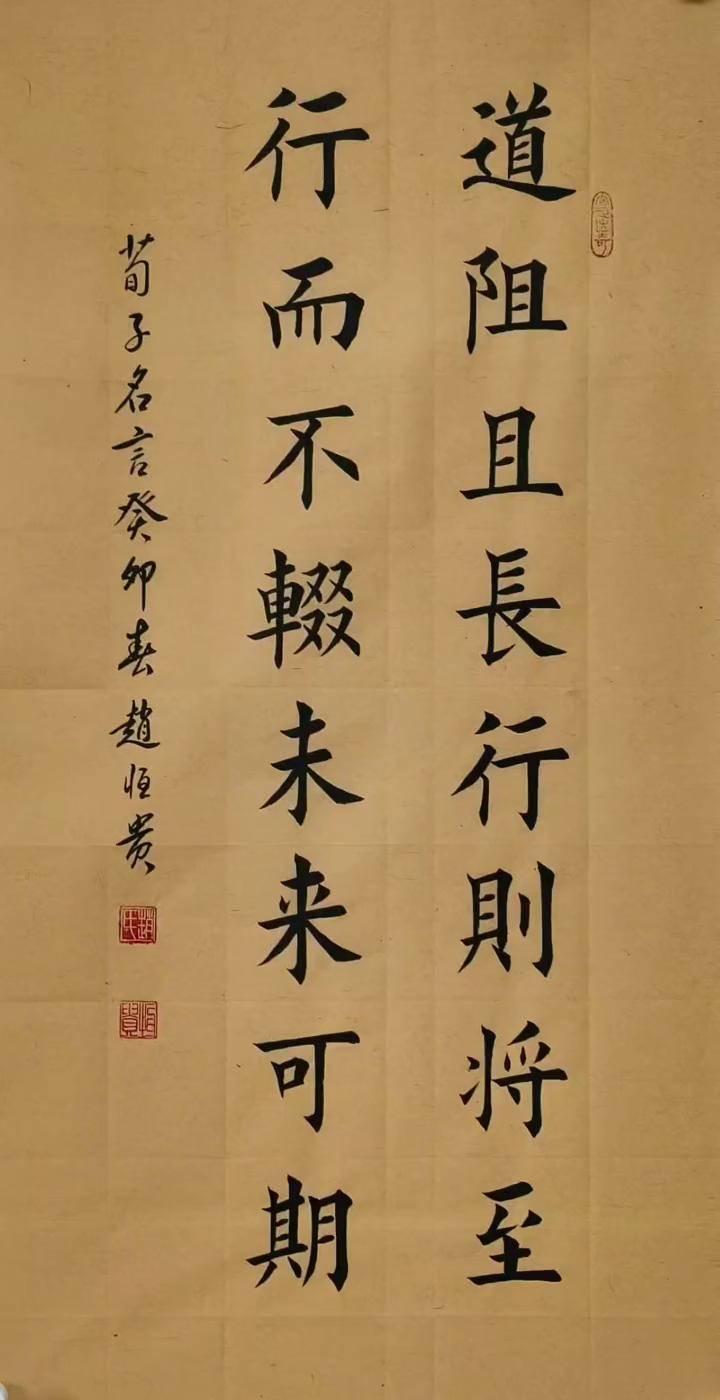 道阻且長行則将至
行而不輟未来可期
荀子名言癸卯春趙恒贵
趙氏
恒貴